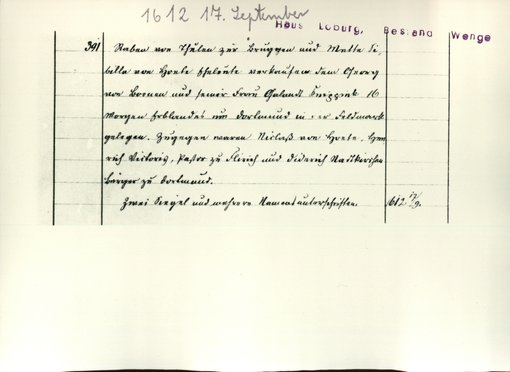 1612 17. September
Haus Loburg, Bestand Wenge
391 Raben von Thülen zur Brüggen und Mette Si-
bella von Hoete Eheleute verkaufen dem Georg
von Boenen und seiner Frau 16
Morgen Erblandes im Dortmund in der Feldmark
gelegen. Zugegen waren von Hoete, Hen
rich Victoris, Pastor zu Flirich und Diderich
Bürger zu Dortmund.
Zwei Siegel und mehrere Namensunterschriften. 1612 17/9.